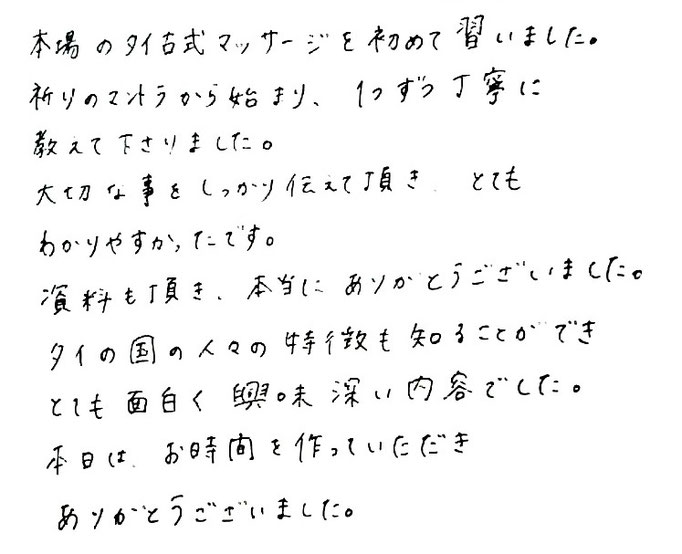 本場のタイ古式マッサージを初めて習いました。
祈りのマントラから始まり、1つずつ丁寧に
教えて下さりました。
大切な事をしっかり伝えて頂き、とても
わかりやすかったです。
資料も頂き、本当にありがとうございました。
タイの国の人々の特徴も知ることができ
とても面白く興味深い内容でした。
本日は、お時間を作っていただき
ありがとうございました。